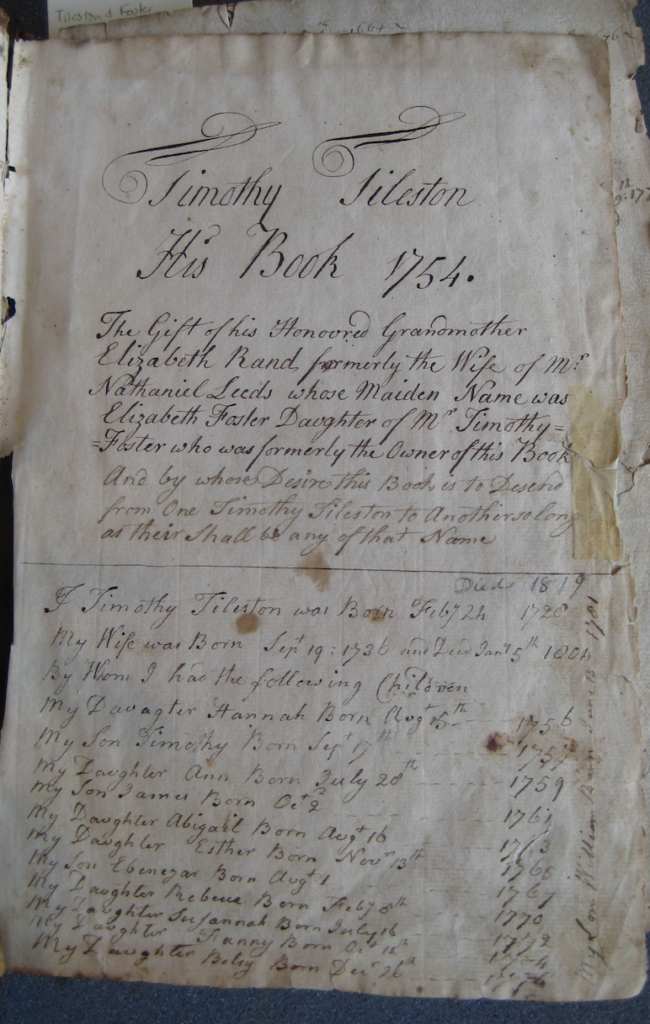 Tileston & Foster
Timothy Tileston
His Book 1754.
The Gift of his Honoored Grandmother
Elizabeth Rand formerly the Wife of Mr
Nathaniel Leeds whose Maiden Name was
Elizabeth Foster Daughter of Mr Timothy=
=Foster who was formerly the Owner of this Book
And by whose Desire this Book is to Desend
from One Timothy Tileston to Another so long
as their Shall be any of that Name
Died 1819
I Timothy Tileston was Born Feby 24 1728
My Wife was Born Sept 19: 1736 and Died Jany 5th 1804
By Whom I had the following Children
My Davagter Hannah Born Augt 15th 1756
My Son Timothy Born Sept 17th 1757
My Daughter Ann Born July 20th 1759
My Son James Born Oct 2 1761
My Daughter Abigail Born Augt 16 1763
My Daughter Esther Born Novr 13th 1765
My Son Ebenezar Born Augt 1 1767
My Daughter Rebecca Born Feby 8th 1770
My Daughter Susannah Born July 16 1772
My Daughter Fanny Born Oct
My Daughter Betsy Born Decr 26
My Son William Born June 1781